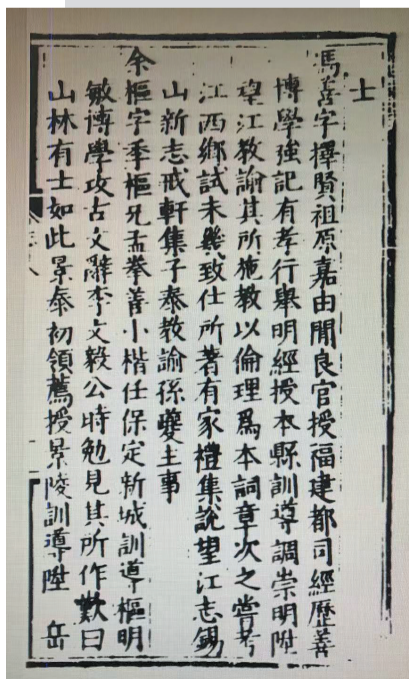 士
馮善字擇賢祖原嘉由閒良官授福建都司經歷善
博學強記有孝行舉明經授本縣訓導調崇明陞
望江教諭其所施教以倫理爲本詞章次之嘗考
江西鄉試未幾致仕所著有家禮集說望江志錫
山新志戒軒集子泰教諭孫夔主事
余樞字季樞兄孟拳善小楷任保定新城訓導樞明
敏博學攻古文辭李文毅公時勉見其所作歎曰
山林有士如此景泰初領薦授景陵訓導陞 岳